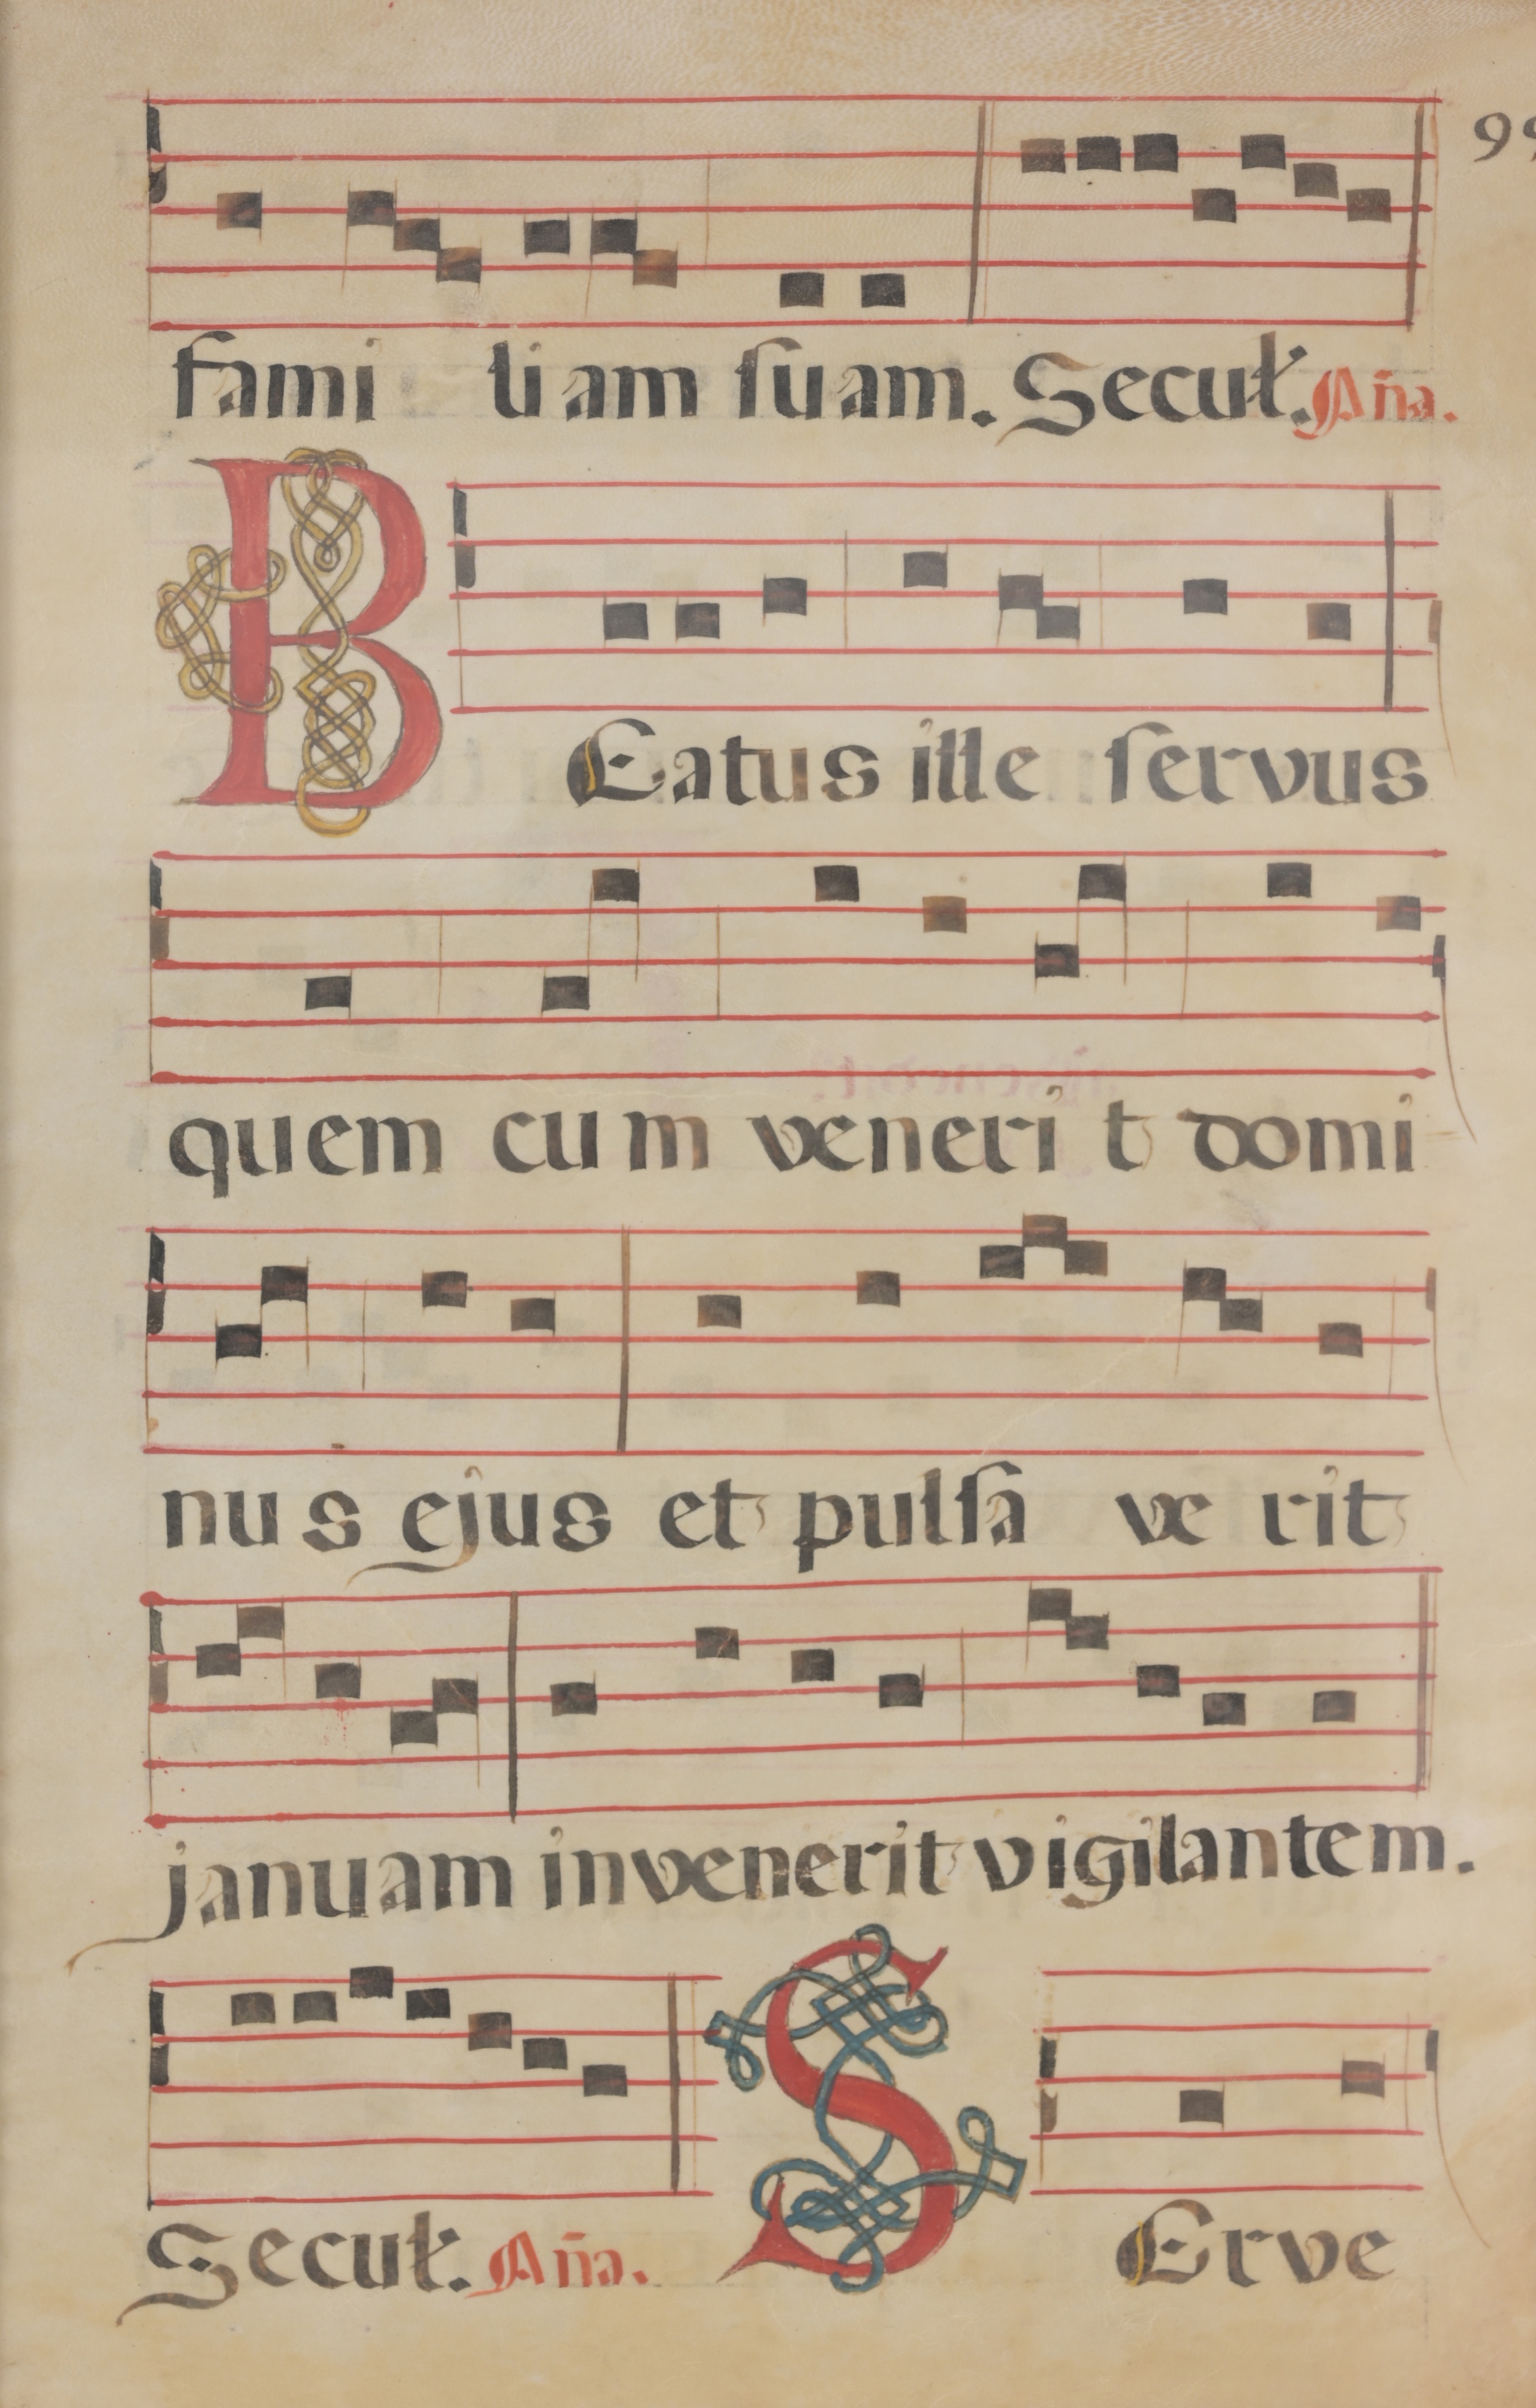 99
fami liam suam. Secuł. Aña.
BEatus ille servus
quem cum venerit domi
nus ejus et pulsa ve rit
januam invenerit vigilantem.
Secuł. Aña. SErve